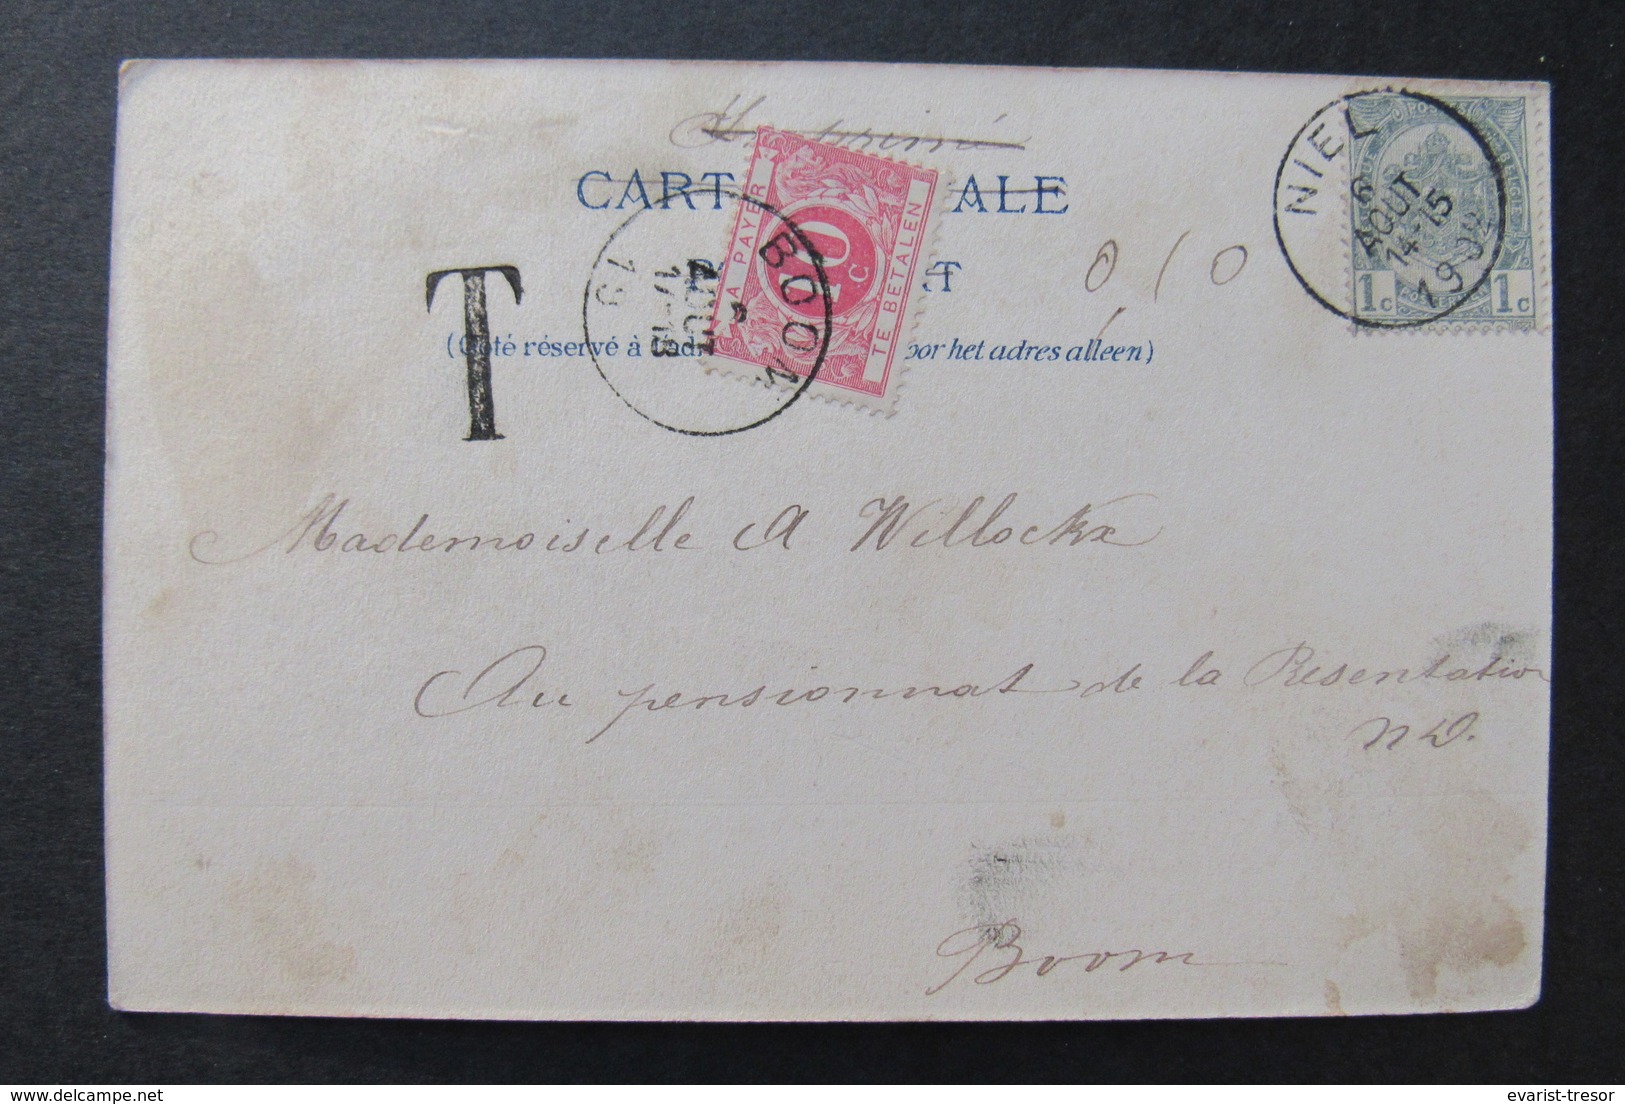 Imprimé
CART ALE
T
(Côté réservé à l'adr oor het adres alleen)
A PAYER
10 c
TE BETALEN
BOOM
6
AOUT
17-18
19
T
0 10
NIEL
6
AOUT
14-15
1902
POSTES
1c 1c
Mademoiselle A Willockx
Au pensionnat de la Résentation
ND.
Boom
evarist-tresor